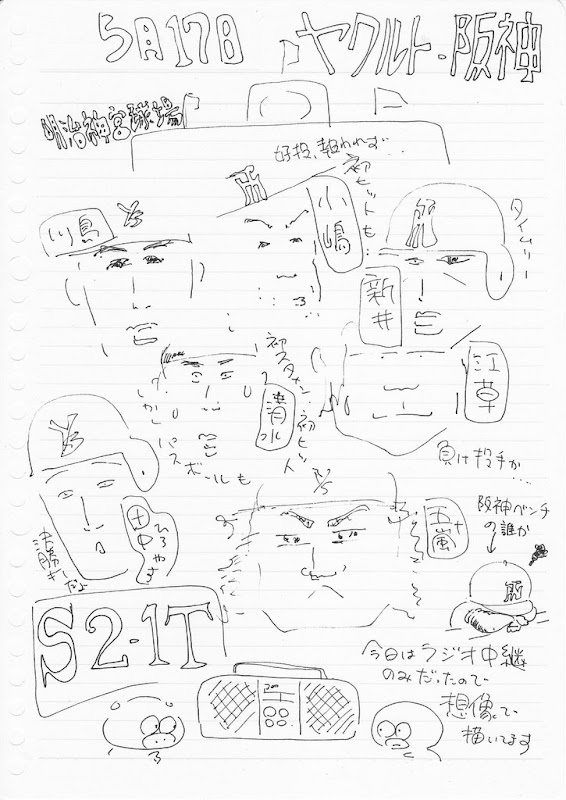 5月17日 ヤクルト・阪神
明治神宮球場
好投、報われず…
初ヒットも…
小嶋
川島
Ys
タイムリー
新井
江草
負け投手か…
初スタメン・初ヒット
しかしパスボールも
清水
Ys
田中
ひろやす
Ys
五十嵐
阪神ベンチ
の誰か
S2-1T
今日はラジオ中継
のみだったので
想像で
描いてます